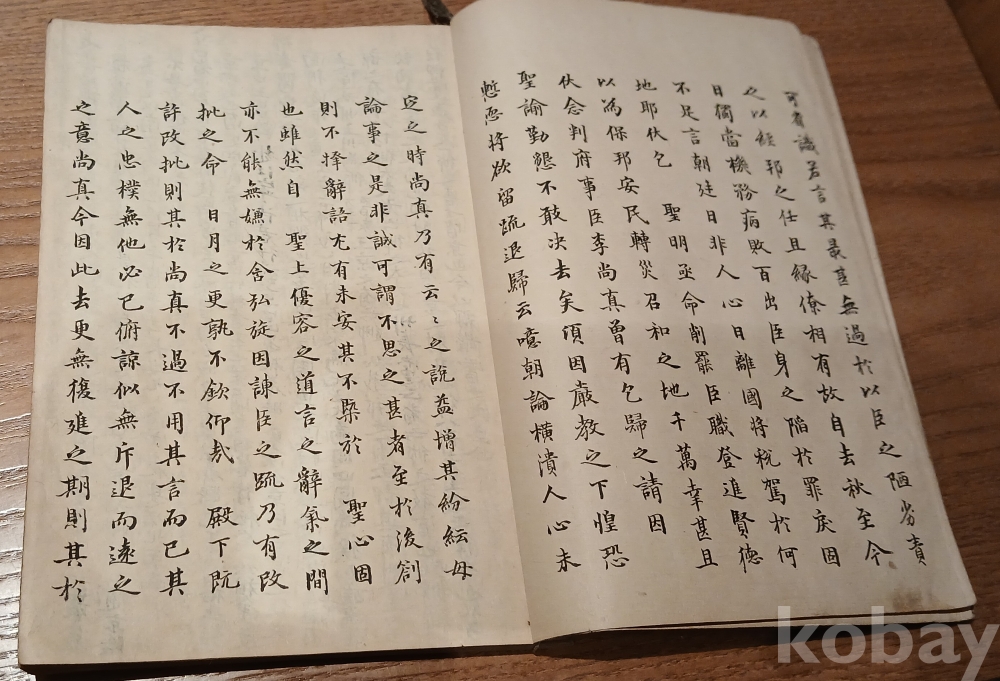 可有識若言其最甚無過於以臣之陋劣責
之以經邦之仕且緣僚相有故自去秋至今
日獨當機務病敗百出臣身之陷於罪戾固
不足言朝廷日非人心日離國將稅駕於何
地耶伏乞 聖明亟命削罷臣職登進賢德
以為保邦安民轉災召和之地千萬幸甚且
伏念判府事臣李尚真曾有乞歸之請因
聖諭勤懇不敢決去矣頃因嚴教之下惶恐
慙恧將欲留疏退歸云噫朝論橫潰人心未
定之時尚真乃有云〻之說益增其紛紜毋
論事之是非誠可謂不思之甚者至於後劄
則不擇辭語尤有未安其不槩於 聖心固
也雖然自 聖上優容之道言之辭氣之間
亦不能無嫌於舍弘旋因諫臣之疏乃有改
批之命 日月之更孰不欽仰哉 殿下旣
許改批則其於尚真不過不用其言而已其
人之忠樸無他必已俯諒似無斥退而遠之
之意尚真今因此去更無復進之期則其於
kobay